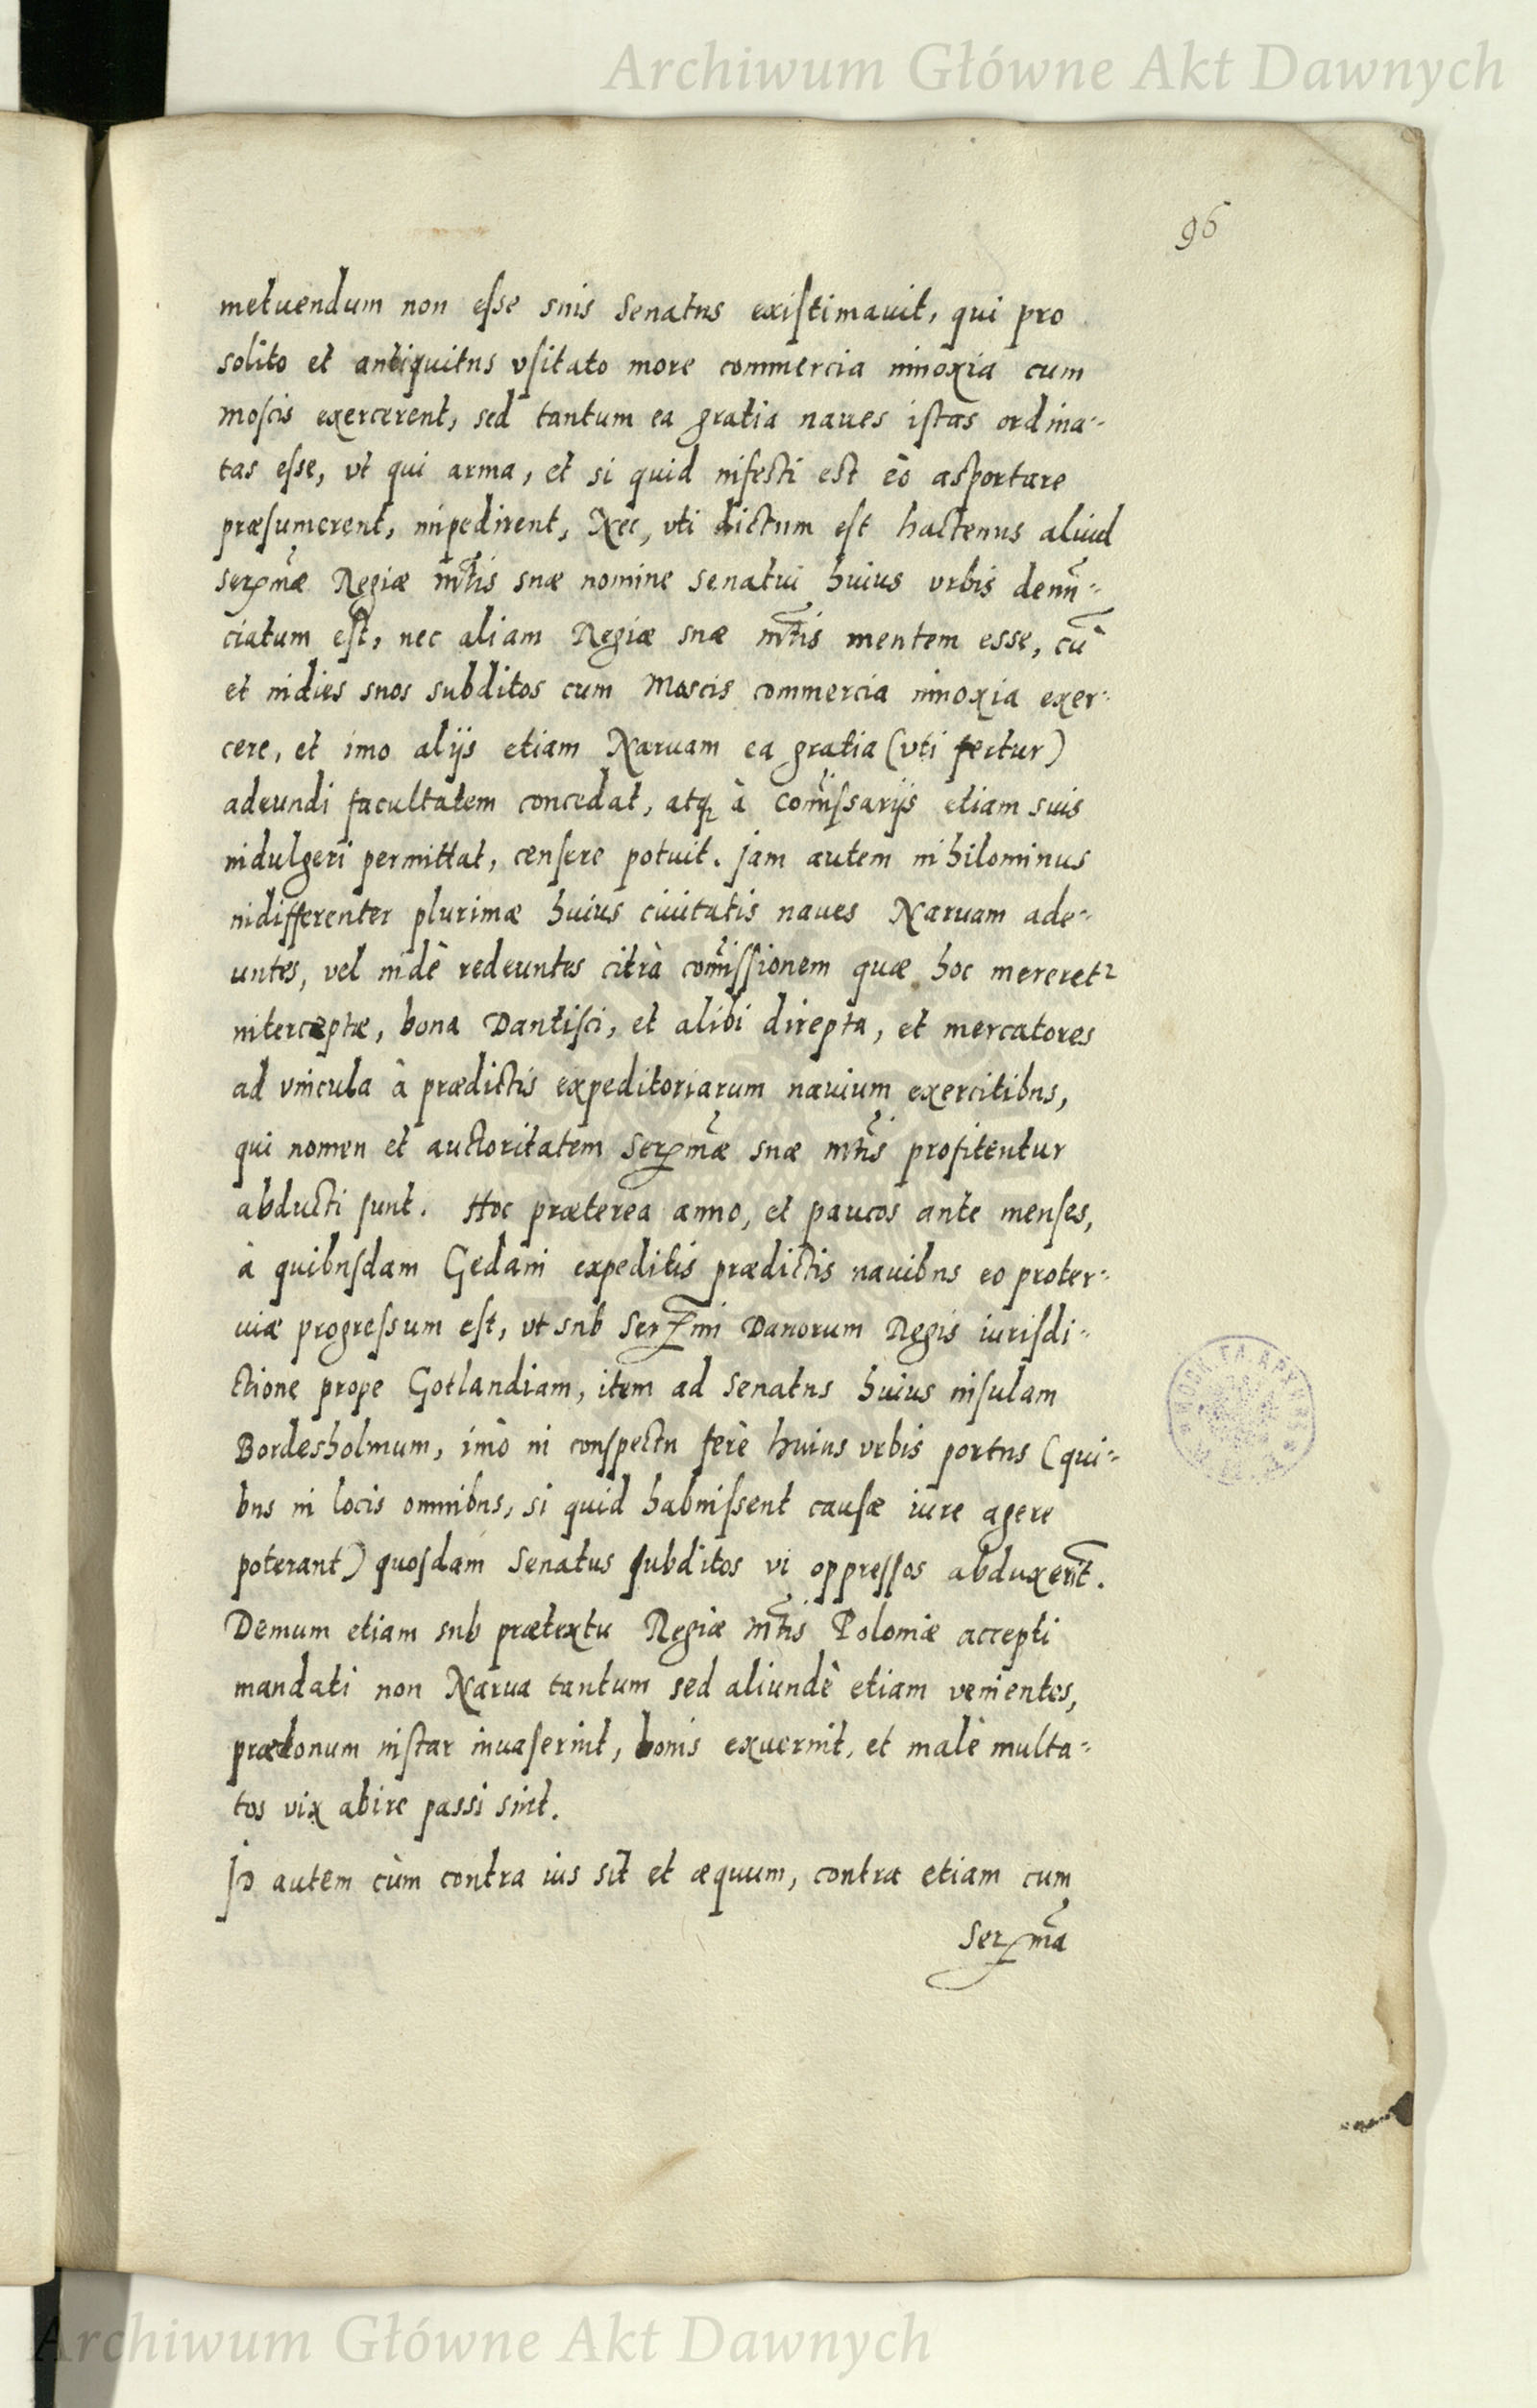 Archiwum Główne Akt Dawnych
96
metuendum non esse suis Senatus existimauit, qui pro
solito et antiquitus vsitato more commercia innoxia cum
moscis exercerent, sed tantum ea gratia naues istas ordina-
tas esse, vt qui arma, et si quid infesti est eò asportare
præsumerent, impedirent, Nec, vti dictum est hactenus aliud
Serᵐæ Regiæ Mtis suæ nomine Senatui huius vrbis denũ-
ciatum est, nec aliam Regiæ suæ Mtis mentem esse, cũ
et indies suos subditos cum Moscis commercia innoxia exer-
cere, et imo alijs etiam Naruam ea gratia (vti fertur)
adeundi facultatem concedat, atq à Com̃issarijs etiam suis
indulgeri permittat, censere potuit. Jam autem nihilominus
indifferenter plurimæ huius ciuitatis naues Naruam ade-
untes, vel indè redeuntes citrà com̃issionem quæ hoc mereret
interceptæ, bona Dantisci, et alibi direpta, et mercatores
ad vincula à prædictis expeditoriarum nauium exercitibus,
qui nomen et auctoritatem Serᵐæ suæ Mtis profitentur
abducti sunt. Hoc præterea anno, et paucos ante menses,
à quibusdam Gedani expeditis prædictis nauibus eo proter-
uiæ progressum est, vt sub Serᵐi Danorum Regis iurisdi-
ctione prope Gotlandiam, item ad Senatus huius insulam
Bordesholmum, imò in conspectu ferè huius vrbis portus (qui-
bus in locis omnibus, si quid habuissent causæ iure agere
poterant) quosdam Senatus subditos vi oppressos abduxerĩt.
Demum etiam sub prætextu Regiæ Mtis Poloniæ accepti
mandati non Narua tantum sed aliundè etiam venientes,
prædonum instar inuaserint, bonis exuerint, et malè multa-
tos vix abire passi sint.
Id autem cùm contra ius sit et æquum, contra etiam cum
Serᵐa
Archiwum Główne Akt Dawnych